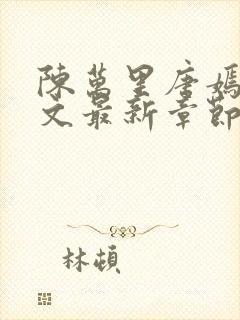 陳萬里唐嫣
文最新章節
林頓